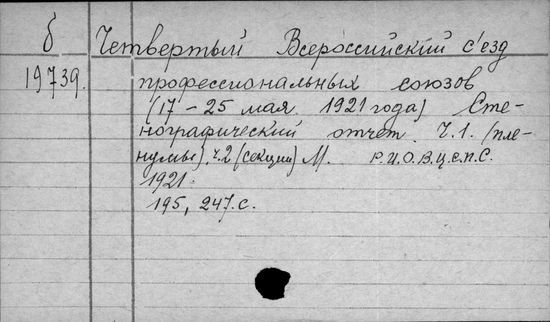 б Четвертый Всероссийский с'езд
19739. профессиональных союзов
(17 - 25 мая 1921 года) Сте-
нографический отчет. Ч.1. (пле-
нумы), ч.2 (секции) М. Р.И.О.В.Ц.С.П.С.
1921.
195, 247.с.